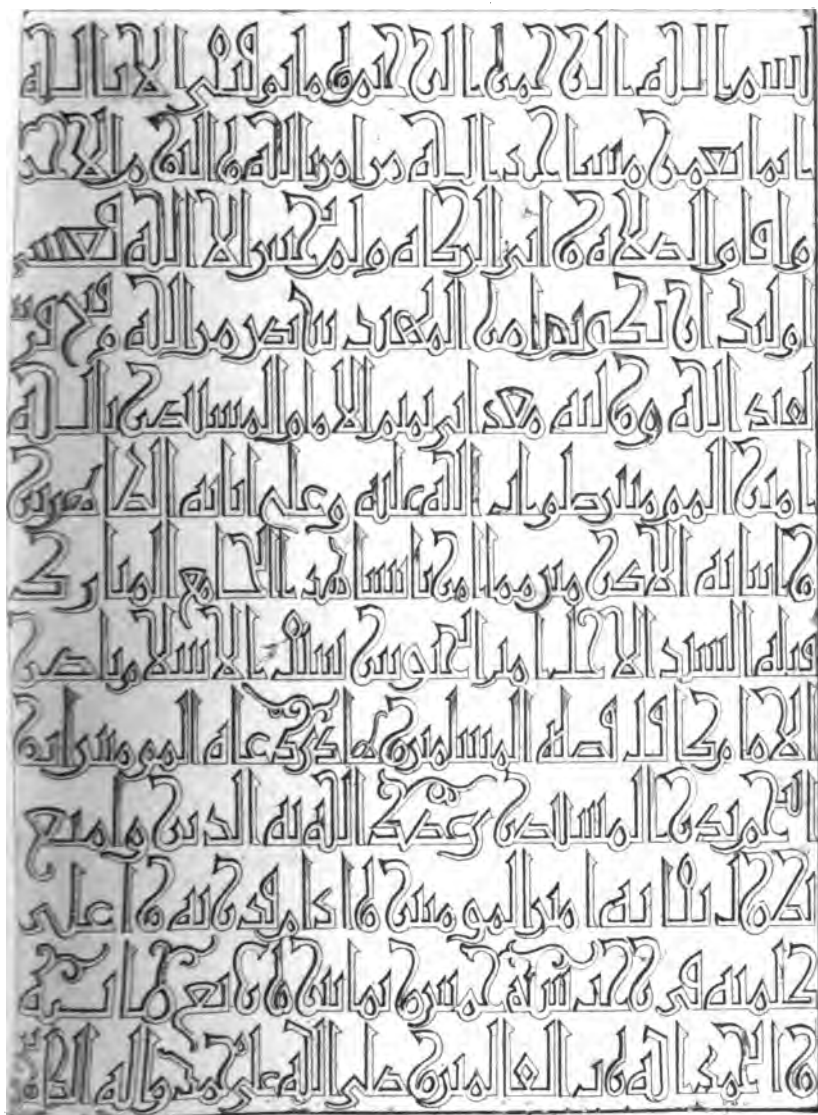 بسم الله الرحمن الرحيم وما توفيقي الا بالله
انما يعمر مساجد الله من امن بالله واليوم الاخر
واقام الصلاة واتى الزكاة ولم يخش الا الله فعسى
اولئك ان يكونوا من المهتدين نصر من الله وفتح قريب
لعبد الله ووليه معد ابي تميم الامام المستنصر بالله
امير المومنين صلوات الله عليه وعلى ابائه الطاهرين
وابنائه الاكرمين مما امر بانشاء هذا الجامع المبارك
فتاه السيد الاجل امير الجيوش سيف الاسلام ناصر
الامام كافل قضاة المسلمين وهادي دعاة المومنين ابو
النجم بدر المستنصري عضد الله به الدين وامتع
بطول بقائه امير المومنين وادام قدرته واعلى
كلمته في سنة خمس وثمانين واربع مائة
والحمد لله رب العالمين وصلى الله على محمد واله